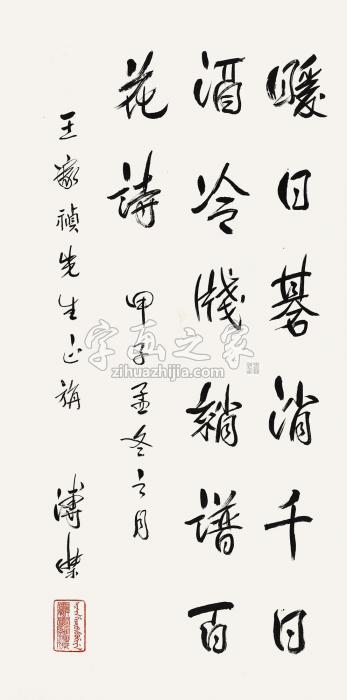 暖日碁消千日
酒冷牋稍譜百
花詩
甲子孟冬之月
王家禎先生正
溥傑
字画之家
zihuazhijia.com